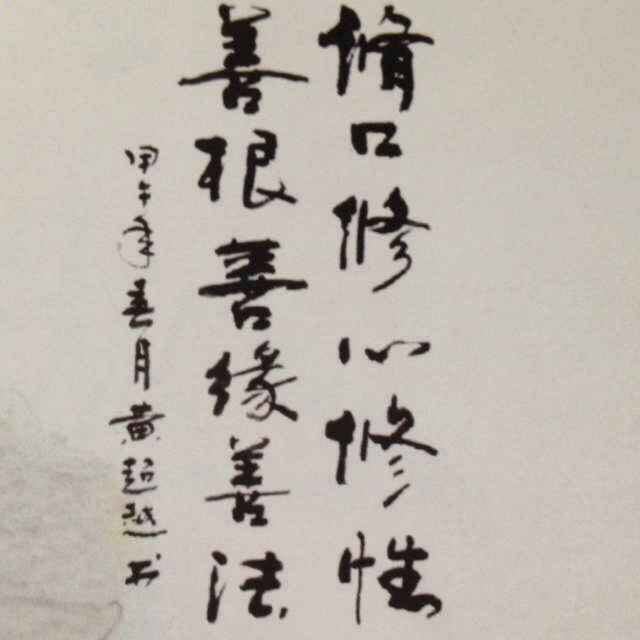 脩口修心修性
善根善缘善法
甲午年春月黄超越书